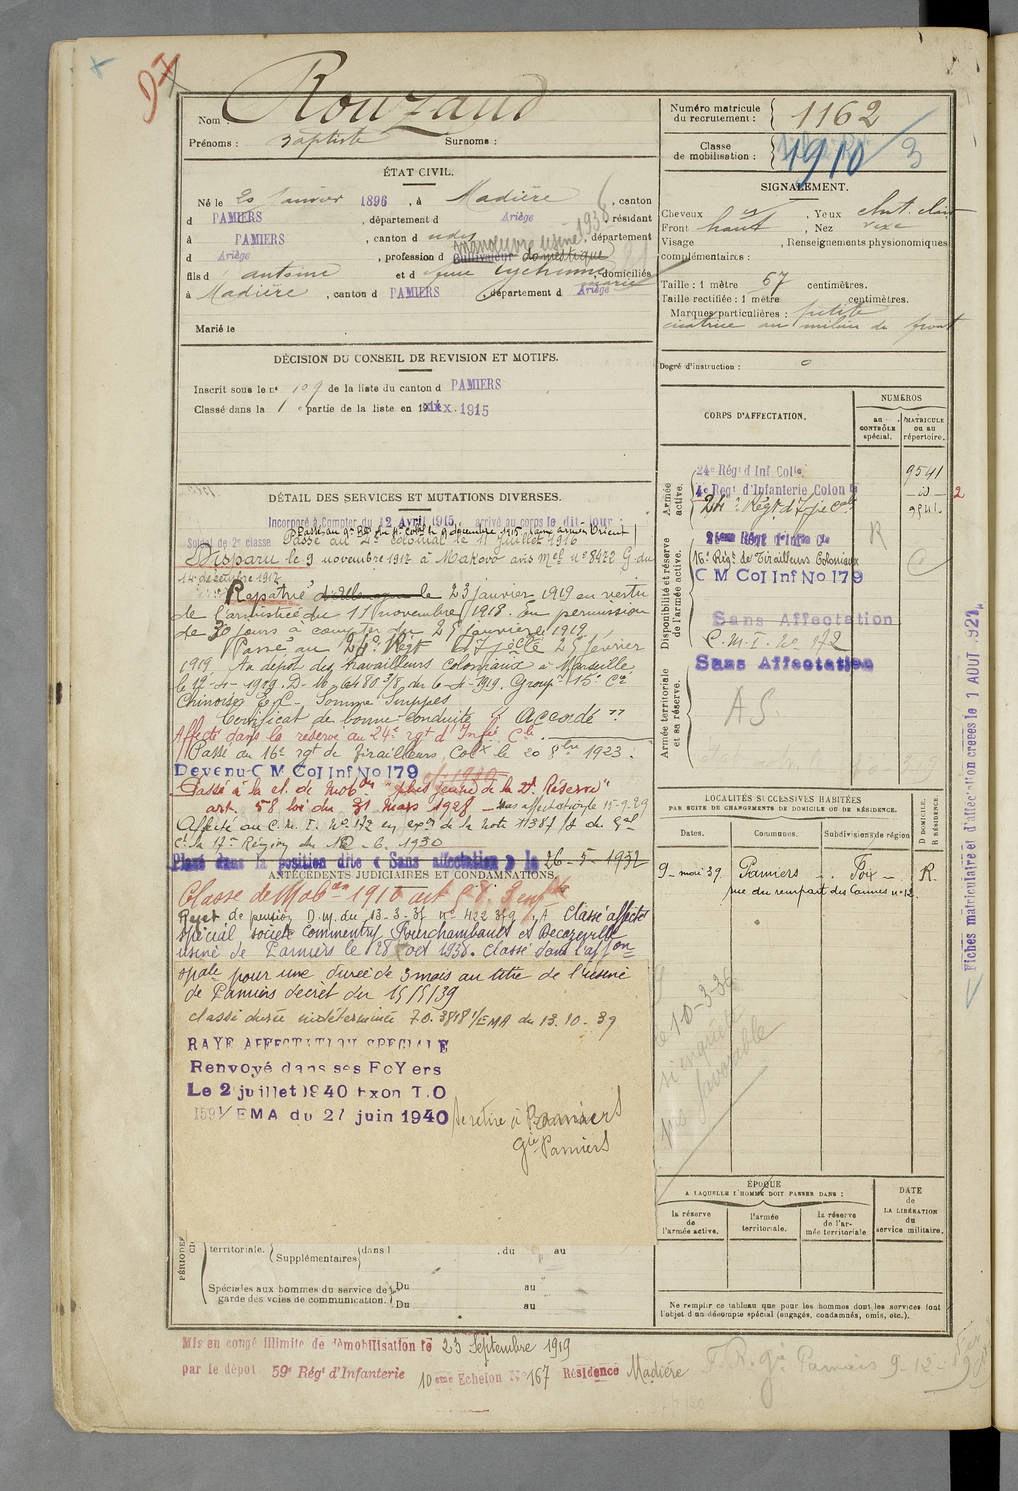 Nom : Rouzaud
Prénoms : Baptiste Surnoms :
Numéro matricule du recrutement : 1162
Classe de mobilisation : 1910 / 3
ÉTAT CIVIL.
Né le 20 Janvier 1896, à Madière, canton
d PAMIERS, département d Ariège résidant
à PAMIERS, canton d udes, département
manœuvre usine 1936
d Ariège, profession d Cultivateur domestique
fils d antoine et d feue, domiciliés
à Madière, canton d PAMIERS, département d Ariège
Marié le
SIGNALEMENT.
Cheveux, Yeux chat. clair
Front haut, Nez vexe
Visage, Renseignements physionomiques
complémentaires :
Taille : 1 mètre 57 centimètres.
Taille rectifiée : 1 mètre centimètres.
Marques particulières : petite
cicatrice au milieu du front
Degré d'instruction : 0
DÉCISION DU CONSEIL DE REVISION ET MOTIFS.
Inscrit sous le n° 109 de la liste du canton d PAMIERS
Classé dans la 1e partie de la liste en 1915
DÉTAIL DES SERVICES ET MUTATIONS DIVERSES.
Incorporé à Compter du 12 Avril 1915, arrivé au corps le dit jour
Soldat de 2e classe Passé au 4e colonial le 11 juillet 1916
Disparu le 9 novembre 1917 à Makovo avis Mel n° 8472 G du
14 décembre 1917
Rapatrié d'Allemagne le 23 janvier 1919 en vertu
de l'armistice du 11 novembre 1918. en permission
de 30 jours à compter du 25 janvier 1919
Passé au 24e Regt d'Inf Colle 25 février
1919. Au depot des travailleurs coloniaux à Marseille
le 12-4-1919. D. M. 6480 3/8 du 6-4-1919. Groupt 15e Cie
Chinoises E.C. Somme
Certificat de bonne conduite "Accordé"
Affecté dans la réserve au 24e rgt d'Infie Cle
Passé au 16e rgt de Tirailleurs Colx le 20 8bre 1923.
Devenu C M Col Inf No 179
Passé à la cl. de mobon "plus jeune de la 2e Réserve"
art. 58 loi du 31 mars 1928 - sans affectation le 15-9-29
Affecté au C. M. I. N° 172 en exon de la note 11387 /1 du Gal
Ct la 17e Région du 10-6-1930
Placé dans la position dite « Sans affectation » le 26-5-1932
ANTÉCÉDENTS JUDICIAIRES ET CONDAMNATIONS.
Classe de Mobon 1910 art 58. 3 enfts
Rejet de pension D.M. du 13-3-37 n° 422 379 / A Classé affecté
spécial société Commentry Fourchambault et Decazeville
usine de Pamiers le 28 oct 1938. Classé dans l'affon
spale pour une durée de 3 mois au titre de l'usine
de Pamiers décret du 15/5/39
classé durée indéterminée 70.3848 1/EMA du 13.10.39
RAYE AFFECTATION SPECIALE
Renvoyé dans ses FOYers
Le 2 juillet 1940 Exon T.O
1591/EMA du 27 juin 1940
Se retire à Pamiers
Gie Pamiers
CORPS D'AFFECTATION.
NUMÉROS
au CONTRÔLE spécial.
MATRICULE ou au répertoire.
Armée active.
24e Régt d'Inf. Colle 9541
4e Regt d'Infanterie Coloniale
24e Régt d'Infie Cle 9541
Disponibilité et réserve de l'armée active.
24ème Régt d'Infie Cle
16e Régt de Tirailleurs Coloniaux
C M Col Inf No 179
Sans Affectation
C. M. I. N° 172
Armée territoriale et sa réserve.
Sans Affectation
A S
LOCALITÉS SUCCESSIVES HABITÉES
PAR SUITE DE CHANGEMENTS DE DOMICILE OU DE RÉSIDENCE.
Dates. Communes. Subdivisions de région
D DOMICILE. R RÉSIDENCE.
9 mai 39. Pamiers - Foix - R.
rue du rempart des Carmes n° 12
le 10-3-36
si enquête
avis favorable
ÉPOQUE
A LAQUELLE L'HOMME DOIT PASSER DANS :
la réserve de l'armée active.
l'armée territoriale.
la réserve de l'armée territoriale
DATE de LA LIBÉRATION du service militaire.
Ne remplir ce tableau que pour les hommes dont les services font
l'objet d'un décompte spécial (engagés, condamnés, omis, etc.).
PÉRIODES
territoriale. Supplémentaires dans l . du au
Spéciales aux hommes du service de garde des voies de communication. Du au
Du au
Mis en congé illimité de démobilisation le 23 Septembre 1919
par le dépôt 59e Régt d'Infanterie 10ème Echelon N° 167 Résidence Madière
F. R. Gie Pamiers 9-12-
Fiches matriculaire et d'affectation créées le 1 AOUT 1927